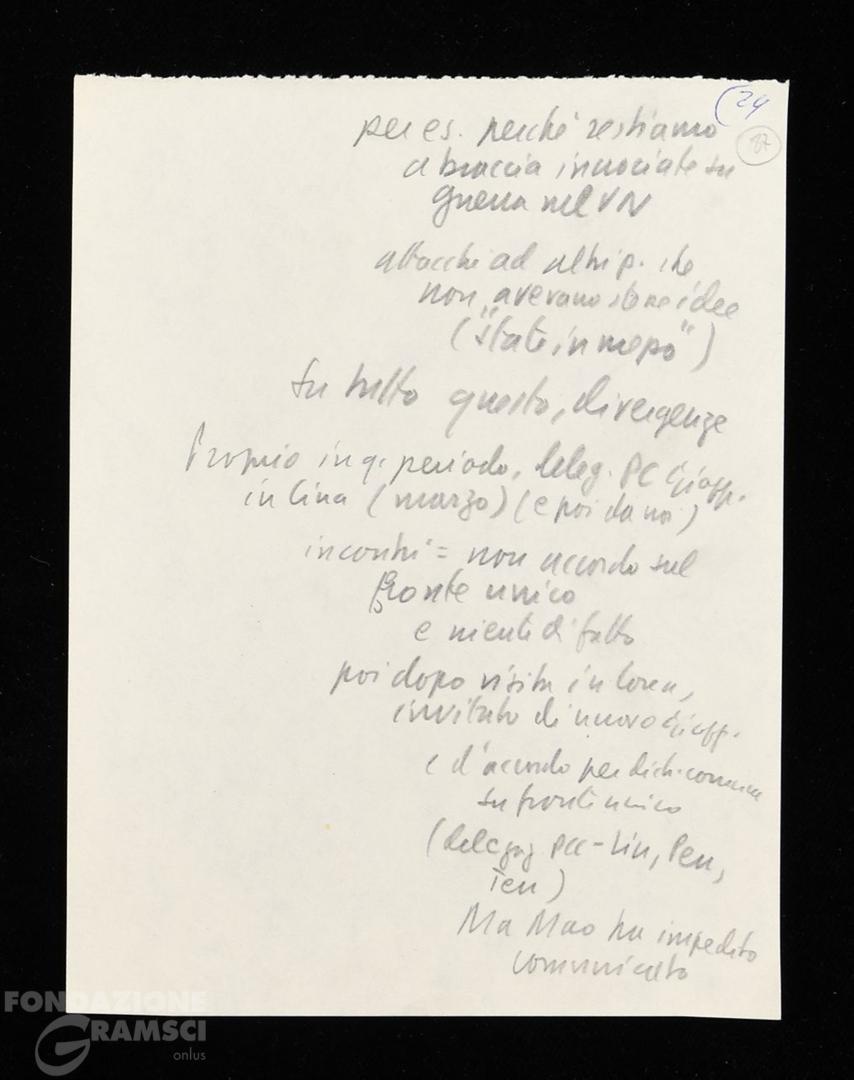 (24
17
per es. perché restiamo
a braccia incrociate su
guerra nel VN
attacchi ad altri p. che
non avevano stesse idee
("state in mezzo")
Su tutto questo, divergenze
Proprio in q. periodo, deleg. PC Giapp.
in Cina (marzo) (e poi da noi)
incontri = non accordo sul
fronte unico
e niente di fatto
poi dopo visita in Corea,
invitato di nuovo Giapp.
e d'accordo per dich. comune
su fronte unico
(delegaz PCC - Liu, Pen,
Ten)
Ma Mao ha impedito
comunicato
FONDAZIONE
GRAMSCI
onlus